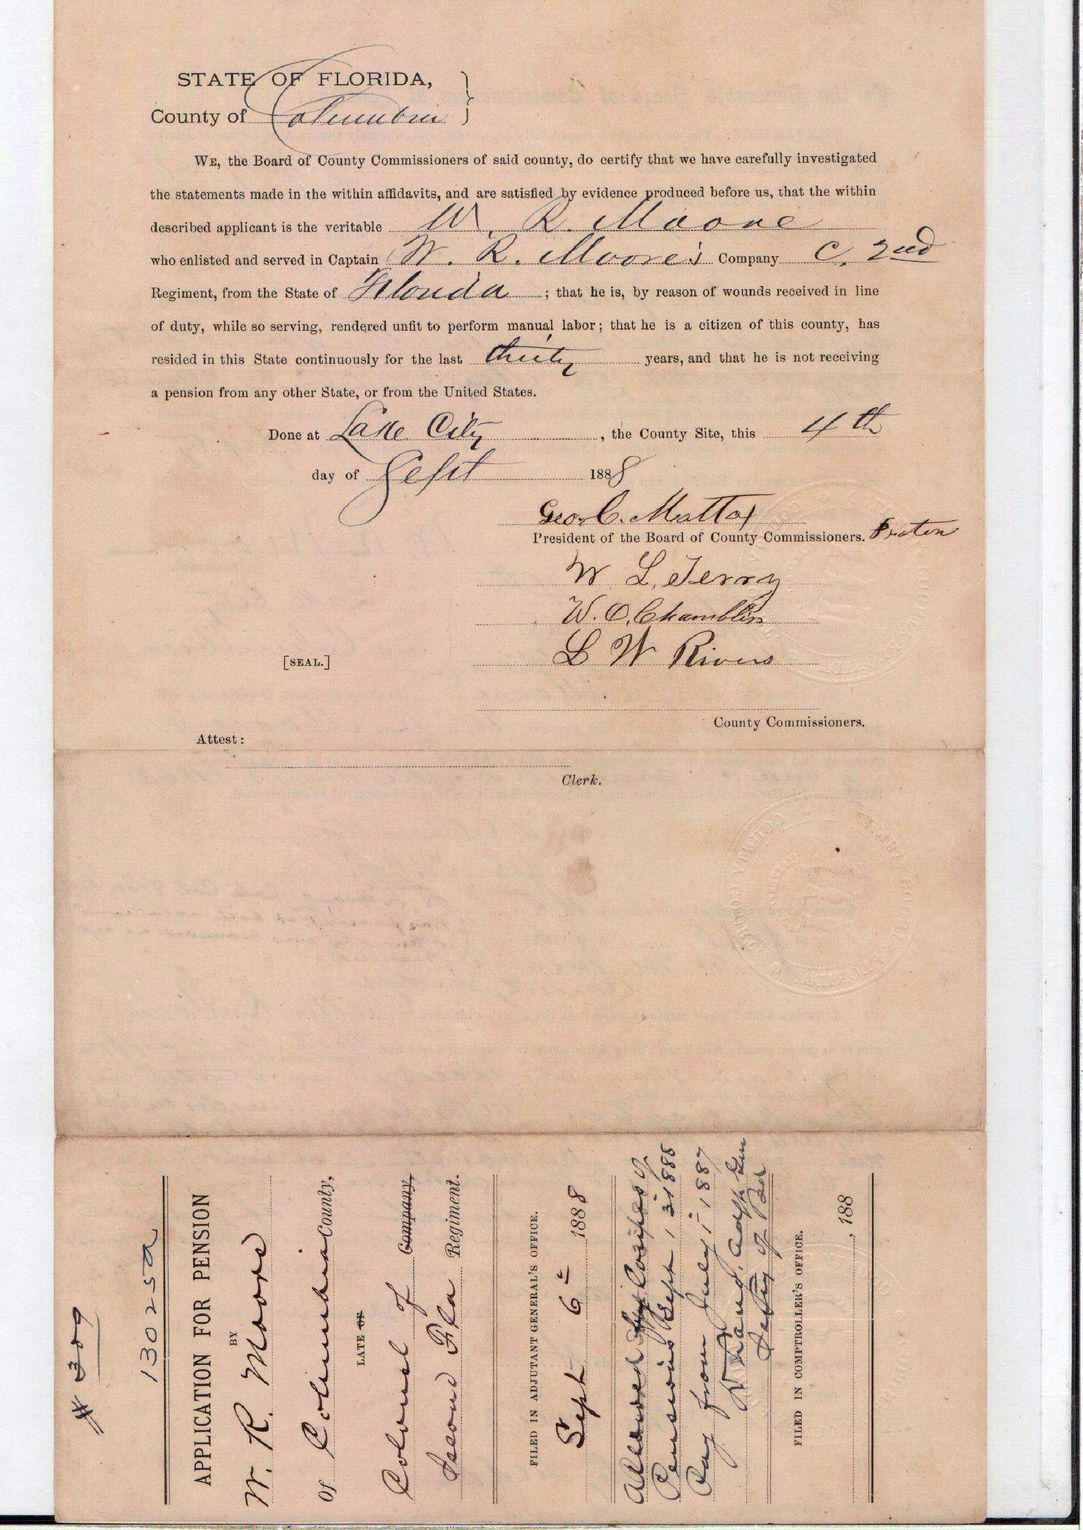 STATE OF FLORIDA,
County of Columbia
WE, the Board of County Commissioners of said county, do certify that we have carefully investigated
the statements made in the within affidavits, and are satisfied by evidence produced before us, that the within
described applicant is the veritable W. R. Moore
who enlisted and served in Captain W. R. Moore's Company C. 2nd
Regiment, from the State of Florida ; that he is, by reason of wounds received in line
of duty, while so serving, rendered unfit to perform manual labor; that he is a citizen of this county, has
resided in this State continuously for the last thirty years, and that he is not receiving
a pension from any other State, or from the United States.
Done at Lake City , the County Site, this 4th
day of Sept 1888
Geo. C. Mattox
President of the Board of County Commissioners. Protem
W L. Terry
W. O. Chamblin
L W Rivers
[SEAL.]
County Commissioners.
Attest:
Clerk.
# 309
13025a
APPLICATION FOR PENSION
BY
W. R. Moore
Of Columbia County,
LATE OF
Colonel of Company,
Second Fla Regiment.
FILED IN ADJUTANT GENERAL'S OFFICE.
Sept 6 1888
Allowed
Pensions Sept 1 1888
Pay from July 1 1887
D Lang, Adjt Gen
FILED IN COMPTROLLER'S OFFICE.
, 188